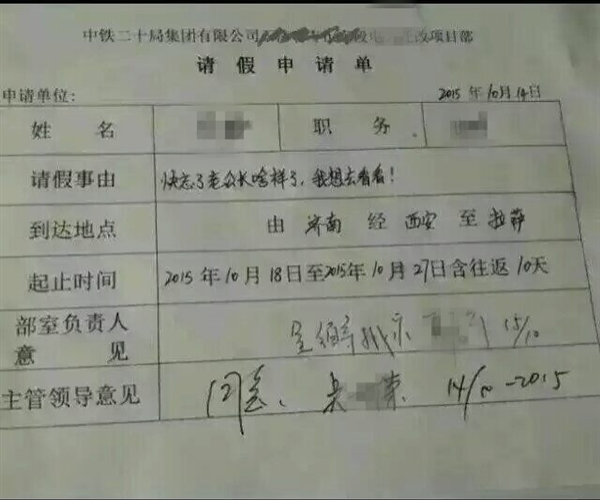 中铁二十局集团有限公司 改项目部
请假申请单
申请单位: 2015年10月14日
姓名 职务
请假事由 快忘了老公长啥样了,我想去看看!
到达地点 由 济南 经 西安 至 拉萨
起止时间 2015年10月18日至2015年10月27日含往返10天
部室负责人
意见 呈领导批示 15/10
主管领导意见 同意. 14/10-2015